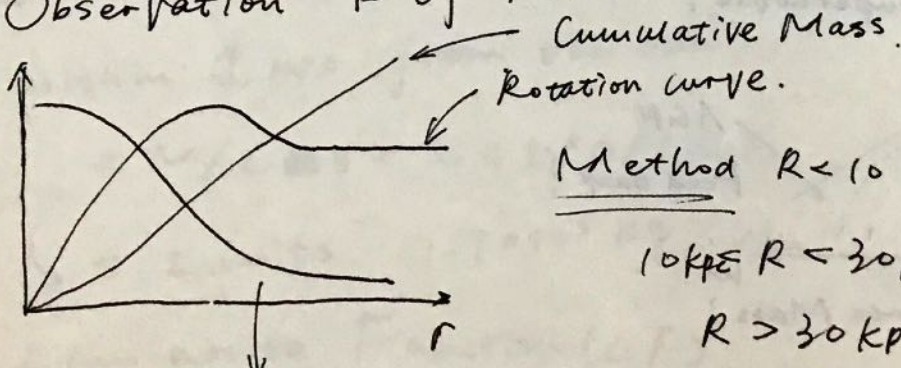 Observation
Cumulative Mass.
Rotation curve.
Method R < 10
10kpc R < 30
R > 30 kp
r